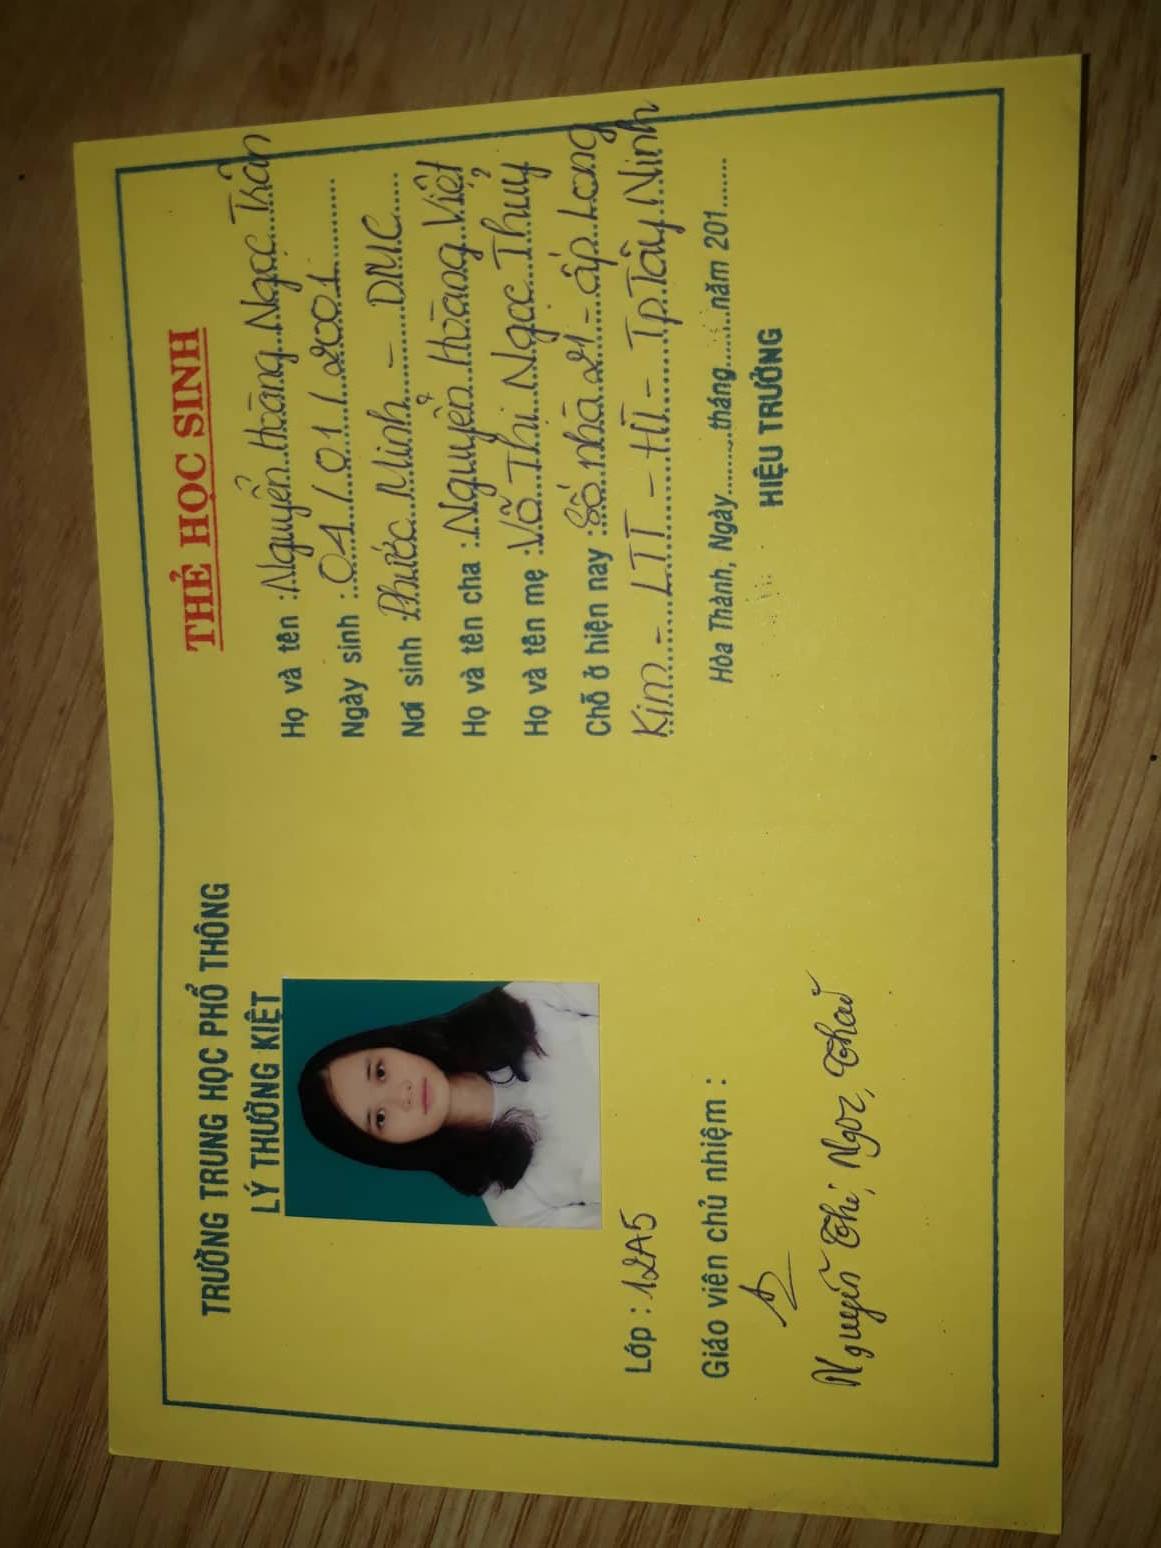 TRƯỜNG TRUNG HỌC PHỔ THÔNG
LÝ THƯỜNG KIỆT
Lớp : 12A5
Giáo viên chủ nhiệm :
Nguyễn Thị Ngọc Thảo
THẺ HỌC SINH
Họ và tên : Nguyễn Hoàng Ngọc Trân
Ngày sinh : 04 / 01 / 2001
Nơi sinh : Phước Minh - DMC
Họ và tên cha : Nguyễn Hoàng Việt
Họ và tên mẹ : Võ Thị Ngọc Thuỷ
Chỗ ở hiện nay : Số nhà 21 - ấp Long
Kim - LTT - HT - Tp Tây Ninh
Hòa Thành, Ngày........tháng........năm 201........
HIỆU TRƯỞNG